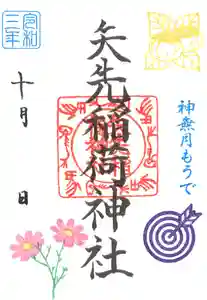 神無月もうで
矢先稲荷神社
令和
三年
十月 日